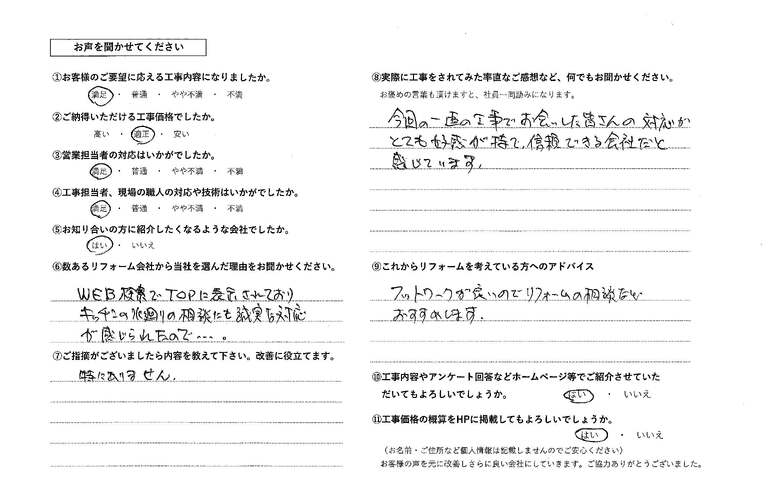 お声を聞かせてください
①お客様のご要望に応える工事内容になりましたか。
満足 ・ 普通 ・ やや不満 ・ 不満
②ご納得いただける工事価格でしたか。
高い ・ 適正 ・ 安い
③営業担当者の対応はいかがでしたか。
満足 ・ 普通 ・ やや不満 ・ 不満
④工事担当者、現場の職人の対応や技術はいかがでしたか。
満足 ・ 普通 ・ やや不満 ・ 不満
⑤お知り合いの方に紹介したくなるような会社でしたか。
はい ・ いいえ
⑥数あるリフォーム会社から当社を選んだ理由をお聞かせください。
WEB検索でTOPに表示されており
キッチンの水廻りの相談にも誠実な対応
が感じられたので・・・。
⑦ご指摘がございましたら内容を教えて下さい。改善に役立てます。
特にありません。
⑧実際に工事をされてみた率直なご感想など、何でもお聞かせください。
お褒めの言葉も頂けますと、社員一同励みになります。
今回の一連の工事でお会いした皆さんの対応が
とても好感が持て、信頼できる会社だと
感じています。
⑨これからリフォームを考えている方へのアドバイス
フットワークが良いのでリフォームの相談など
おすすめします。
⑩工事内容やアンケート回答などホームページ等でご紹介させていた
だいてもよろしいでしょうか。 はい ・ いいえ
⑪工事価格の概算をHPに掲載してもよろしいでしょうか。
はい ・ いいえ
（お名前・ご住所など個人情報は記載しませんのでご安心ください）
お客様の声を元に改善しさらに良い会社にしていきます。ご協力ありがとうございました。